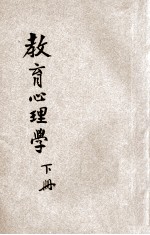 教育心理學
下冊